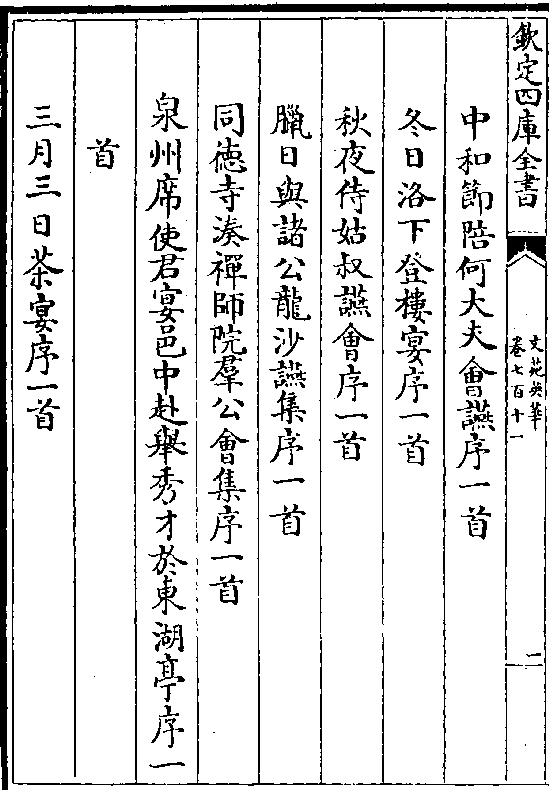 欽定四庫全書
文苑英華
卷七百十一
二
中和節陪何大夫會讌序一首
冬日洛下登樓宴序一首
秋夜侍姑叔讌會序一首
臘日與諸公龍沙讌集序一首
同德寺湊禪師院羣公會集序一首
泉州席使君宴邑中赴舉秀才於東湖亭序一
首
三月三日茶宴序一首